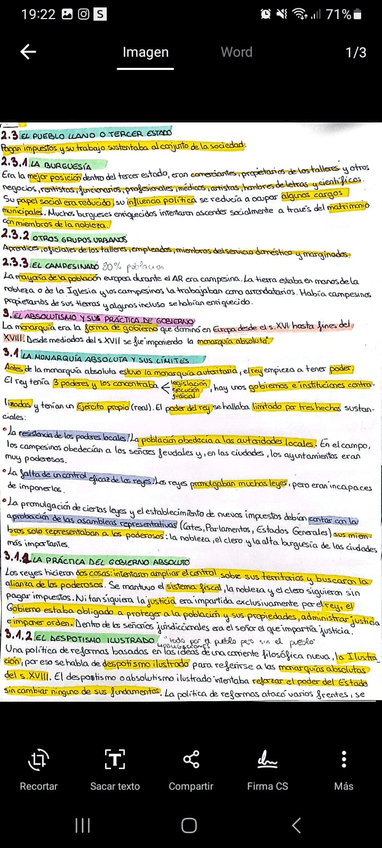 19:22 S 71%
Imagen Word 1/3
2.3 EL PUEBLO LLANO O TERCER ESTADO
Pagan impuestos y su trabajo sustentaba al conjunto de la sociedad.
2.3.1 LA BURGUESÍA
Era la mejor posición dentro del tercer estado, eran comerciantes, propietarios de los talleres y otros
negocios, rentistas, funcionarios, profesionales, médicos, artistas, hombres de letras y científicos.
Su papel social era reducido su influencia política se reducía a ocupar algunos cargos
municipales. Muchos burgueses enriquecidos intentaron ascender socialmente a través del matrimonio
con miembros de la nobleza.
2.3.2 OTROS GRUPOS URBANOS
Aprendices, oficiales de los talleres, empleados, miembros del servicio doméstico y marginados.
2.3.3 EL CAMPESINADO 80% población
La mayoría de la población europea durante el AR era campesina. La tierra estaba en manos de la
nobleza o de la Iglesia y los campesinos la trabajaban como arrendatarios. Había campesinos
propietarios de sus tierras y algunos incluso se habían enriquecido.
3. EL ABSOLUTISMO Y SUS PRÁCTICA DE GOBIERNO
La monarquía era la forma de gobierno que dominó en Europa desde el s. XVI hasta fines del
XVIII. Desde mediados del s. XVII se fue imponiendo la monarquía absoluta.
3.1 LA MONARQUÍA ABSOLUTA Y SUS LÍMITES
Antes de la monarquía absoluta estuvo la monarquía autoritaria, el rey empieza a tener poder.
El rey tenía 3 poderes y los concentraba legislación ejecución judicial, hay unos gobiernos e instituciones contro-
lados y tenían un Ejército propio (real). El poder del rey se hallaba limitado por tres hechos sustan-
ciales:
• La resistencia de los poderes locales/ La población obedecía a las autoridades locales. En el campo,
los campesinos obedecían a los señores feudales y, en las ciudades, los ayuntamientos eran
muy poderosos.
• La falta de un control eficaz de los reyes/ Los reyes promulgaban muchas leyes, pero eran incapaces
de imponerlas.
• La promulgación de ciertas leyes y el establecimiento de nuevos impuestos debían contar con la
aprobación de las asambleas representativas (Cortes, Parlamentos, Estados Generales) sus miem
bros solo representaban a los poderosos: la nobleza, el clero y la alta burguesía de las ciudades
más importantes.
3.1.2 LA PRÁCTICA DEL GOBIERNO ABSOLUTO
Los reyes hicieron dos cosas: intentaron ampliar el control sobre sus territorios y buscaron la
alianza de los poderosos. Se mantuvo el sistema fiscal, la nobleza y el clero siguieron sin
pagar impuestos. Ni tan siquiera la justicia era impartida exclusivamente por el rey, el
Gobierno estaba obligado a proteger a la población y sus propiedades, administrar justicia
e imponer orden. Dentro de los señoríos jurisdiccionales era el señor el que impartía justicia.
3.1.2 EL DESPOTISMO ILUSTRADO "todo por el pueblo pero sin el pueblo"
Una política de reformas basadas en las ideas de una corriente filosófica nueva, la Ilustra
ción, por eso se habla de despotismo ilustrado para referirse a las monarquías absolutas
del s. XVIII. El despotismo o absolutismo ilustrado intentaba reforzar el poder del Estado
sin cambiar ninguno de sus fundamentos. La política de reformas atacó varios frentes, se
Recortar Sacar texto Compartir Firma CS Más